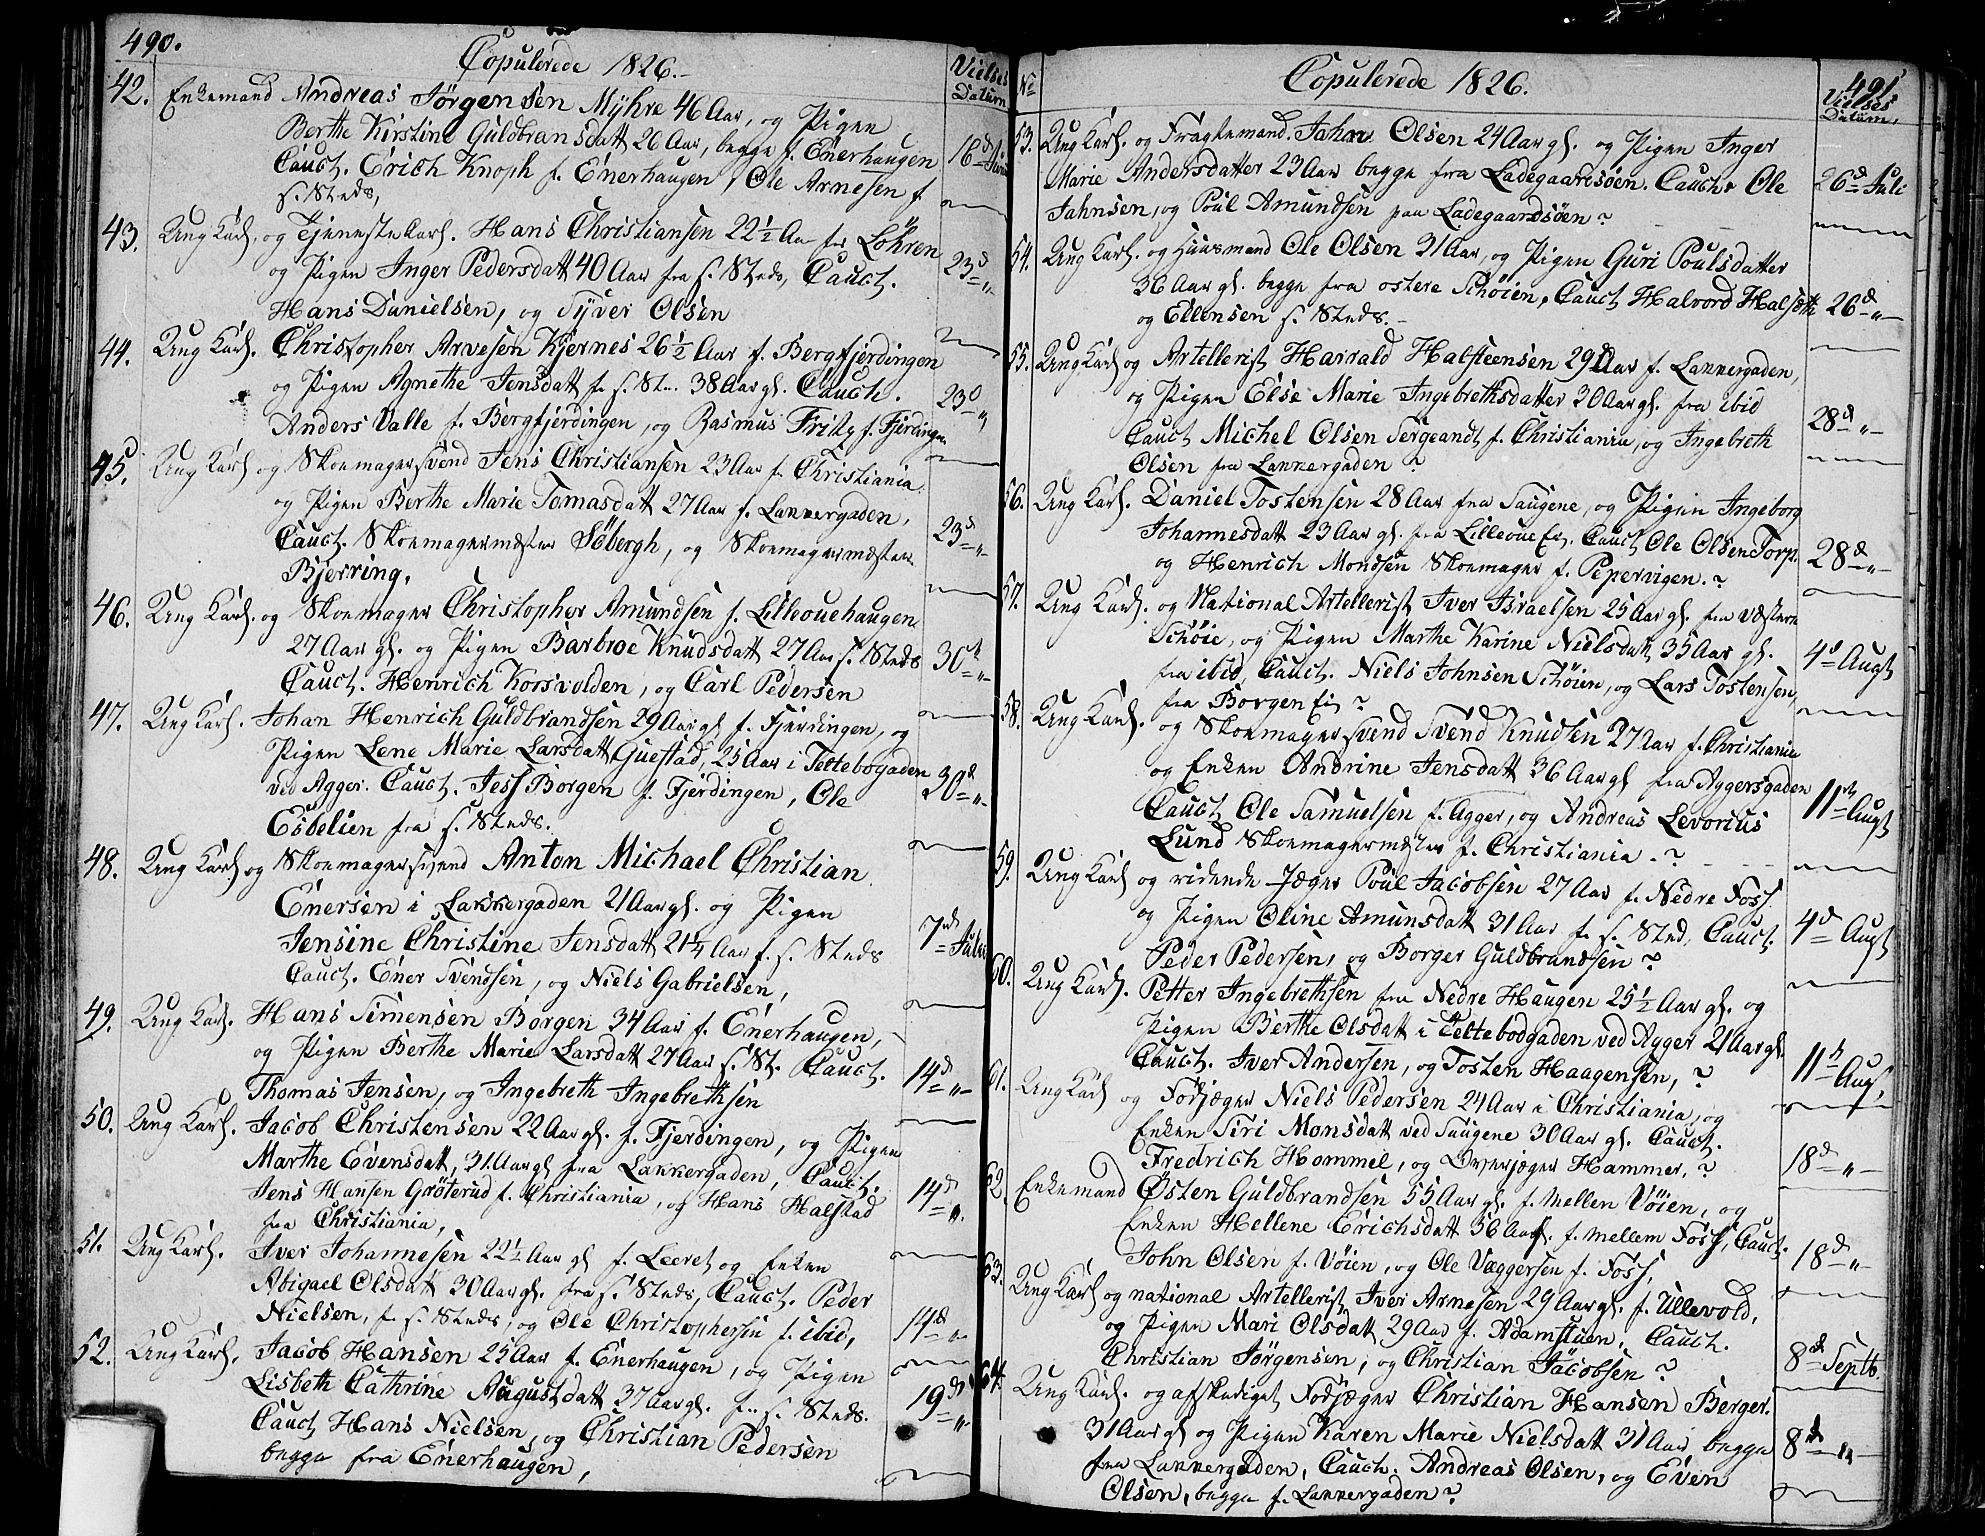 490.
Copulerede 1826.
Vielses Datum
42. Enkemand Andreas Jørgensen Myhre 46 Aar, og Pigen
Berthe Kirstine Guldbransdatt 26 Aar, begge f. Enerhaugen
Cauct. Erich Knoph f. Enerhaugen, Ole Arnesen f. 16d Juni
s. Steds,
43. Ung Karl, og Tjenestekarl. Hans Christiansen 22½ Aar fra Løhren
og Pigen Inger Pedersdatt 40 Aar fra s. Steds, Cauct. 23d "
Hans Danielsen, og Syver Olsen
44. Ung Karl. Christopher Arvesen Kjernes 26½ Aar f. Bergfjerdingen
og Pigen Agnethe Jensdatt fr s. St. 38 Aar gl. Cauct. 23d "
Anders Valle f. Bergfjerdingen, og Rasmus Fritz f. Fjerdingen
45. Ung Karl og Skomagersvend Jens Christiansen 23 Aar f. Christiania
og Pigen Berthe Marie Tomasdatt 27 Aar f. Lakkergaden,
Cauct. Skomagermester Søbergh, og Skomagermester 23d "
Bjerring.
46. Ung Karl. og Skomager Christopher Amundsen f. Lilleouehaugen
27 Aar gl. og Pigen Barbroe Knudsdatt 27 Aar s. Steds 30te "
Cauct. Henrich Korsvolden, og Carl Pedersen
47. Ung Karl. Johan Henrich Guldbrandsen 29 Aar gl f. Fjerdingen, og
Pigen Lene Marie Larsdatt Guestad, 25 Aar i Teltebogaden
ved Agger. Cauct. Jess Borgen f. Fjerdingen, Ole 30d "
Esbelien fra s. Steds.
48. Ung Karl og Skomagersvend Anton Michael Christian
Enersen i Lakkergaden 21 Aar gl. og Pigen
Jensine Christine Jensdatt 21½ Aar f. s. Steds 7de Juli
Cauct. Ener Svendsen, og Niels Gabrielsen,
49. Ung Karl. Hans Simensen Borgen 34 Aar f. Enerhaugen,
og Pigen Berthe Marie Larsdatt 27 Aar s. St. Cauct. 14d "
Thomas Jensen, og Ingebreth Ingebrethsen
50. Ung Karl. Jacob Christensen 22 Aar gl. f. Fjerdingen, og Pigen
Marthe Evensdatt, 31 Aar gl fra Lakkergaden, Cauct.
Jens Hansen Grøterud f. Christiania, og Hans Halstad 14d "
fra Christiania,
51. Ung Karl. Iver Johannesen 22½ Aar gl f. Leeret og Enken
Abigael Olsdatt 30 Aar gl. fra s. Steds, Cauct. Peder
Nielsen, f. s. Steds, og Ole Christophersen f. ibid, 14d "
52. Ung Karl. Jacob Hansen 25 Aar f. Enerhaugen, og Pigen
Lisbeth Cathrine Augustdatt 37 Aar gl. f. s. Steds. 19d "
Cauct Hans Nielsen, og Christian Pedersen
begge fra Enerhaugen,
No
Copulerede 1826.
491
Vielses Datum,
53. Ung Karl. og Fragtemand. Jahn Olsen 24 Aar gl. og Pigen Inger
Marie Andersdatter 23 Aar begge fra Ladegaardsøen. Cauct. Ole 26d Juli
Jahnsen, og Poul Amundsen paa Ladegaardsøen?
54. Ung Karl. og Huusmand Ole Olsen 31 Aar, og Pigen Guri Poulsdatter
36 Aar gl. begge fra østere Schøien, Cauct Halvord Halseth 26d "
og Ellensen s. Steds.
55. Ung Karl og Artellerist Harrald Halsteensen 29 Aar f. Lakkergaden,
og Pigen Else Marie Ingebrethsdatter 30 Aar gl. fra ibid
Cauct Michel Olsen Sergeandt f. Christiania, og Ingebreth 28d "
Olsen fra Lakkergaden?
56. Ung Karl. Daniel Tostensen 28 Aar fra Saugene, og Pigen Ingeborg
Johannesdatt 23 Aar gl. fra Lilleoue Ei. Cauct Ole Olsen Torp.
og Henrich Monsen Skomager f. Pepervigen.? 28d "
57. Ung Karl. og National Artellerist Iver Israelsen 25 Aar gl. fra vestere
Schøie, og Pigen Marthe Karine Nielsdatt 35 Aar gl.
fra ibid, Cauct. Niels Johnsen Schøien, og Lars Tostensen, 4d Augt
fra Borgen Ei?
58. Ung Karl. og Skomagersvend Svend Knudsen 27 Aar f. Christiania
og Enken Andrine Jensdatt 36 Aar gl fra Aggersgaden
Cauct Ole Samuelsen f. Agger, og Andreas Levorius 11te Augt
Lund Skomagermester f. Christiania.?
59. Ung Karl og ridende Jæger Poul Jacobsen 27 Aar f. Nedre Foss
og Pigen Oline Amunsdatt 31 Aar f. s. Sted, Cauct. 4d Augt
Peder Pedersen, og Borger Guldbrandsen?
60. Ung Karl. Petter Ingebrethsen fra Nedre Haugen 25½ Aar gl. og
Pigen Berthe Olsdatt i Teltebodgaden ved Agger 21 Aar gl.
Cauct. Iver Andersen, og Tosten Haagensen,? 11te Augt
61. Ung Karl og Fodjæger Niels Pedersen 24 Aar i Christiania, og
Enken Siri Monsdatt ved Saugene 30 Aar gl. Cauct.
Fredrich Hommel, og Overjæger Hammer,? 18d "
62. Enkemand Østen Guldbrandsen 55 Aar gl. f. Mellem Vøien, og
Enken Hellene Erichsdatt 56 Aar. f. Mellem Foss, Cauct.
John Olsen f. Vøien, og Ole Væggersen f. Foss, 18d "
63. Ung Karl og national Artellerist Iver Arnesen 29 Aar gl. f. Ullevold,
og Pigen Mari Olsdatt 29 Aar f. Adamstuen, Cauct.
Christian Jørgensen, og Christian Jacobsen? 8d Septb.
64. Ung Karl. og afskediget Fodjæger Christian Hansen Berger.
31 Aar gl og Pigen Karen Marie Nielsdatt 31 Aar begge 8d "
fra Lakkergaden, Cauct. Andreas Olsen, og Even
Olsen, begge f. Lakkergaden?